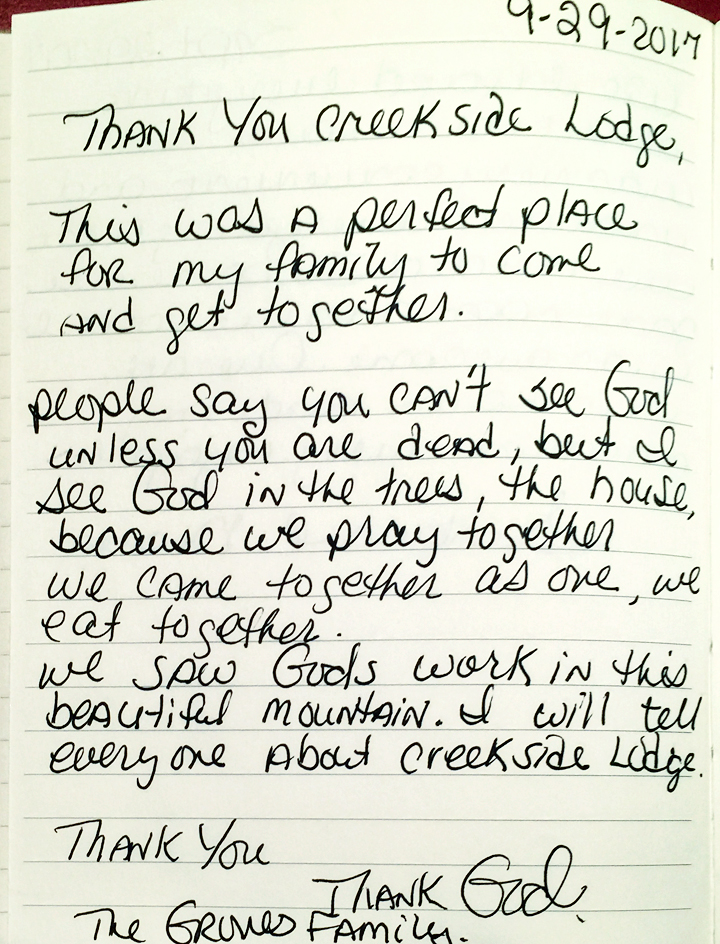 9-29-2017
THANK YOU Creekside Lodge,
This was A perfect place
for my family to come
and get together.
people say you can't see God
unless you are dead, but I
see God in the trees, the house,
because we pray together
we came together as one, we
eat together.
we saw Gods work in this
beautiful mountain. I will tell
everyone About Creekside Lodge.
THANK YOU
THANK God.
The Family.